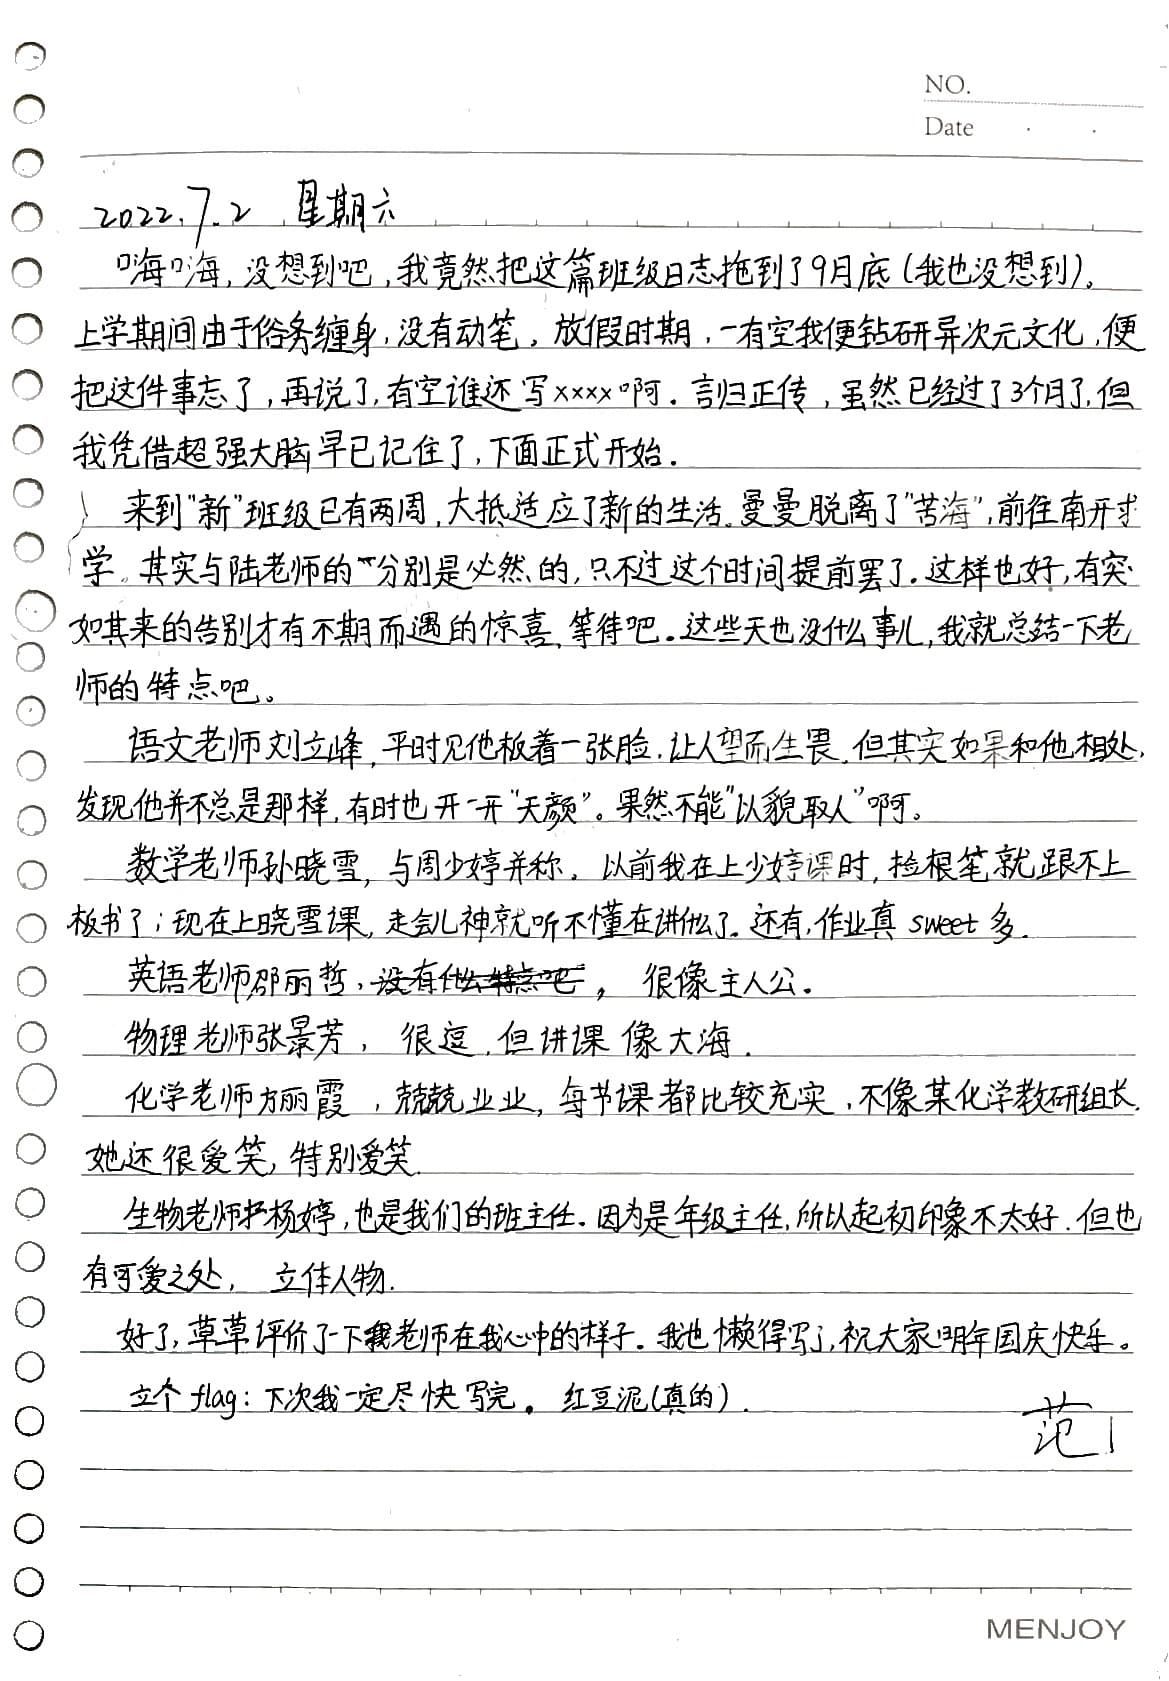 NO.
Date
2022.7.2 星期六
嗨嗨,没想到吧,我竟然把这篇班级日志拖到了9月底(我也没想到)。
上学期间由于俗务缠身,没有动笔。放假时期,一有空我便钻研异次元文化,便
把这件事忘了,再说了,有空谁还写xxxx啊.言归正传,虽然已经过了3个月了,但
我凭借超强大脑早已记住了,下面正式开始.
来到"新"班级已有两周,大抵适应了新的生活.曼曼脱离了"苦海",前往南开求
学。其实与陆老师的分别是必然的,只不过这个时间提前罢了.这样也好,有突
如其来的告别才有不期而遇的惊喜,等待吧。这些天也没什么事儿,我就总结一下老
师的特点吧。
语文老师刘立峰,平时见他板着一张脸,让人望而生畏.但其实如果和他相处,
发现他并不总是那样,有时也开一开"天颜"。果然不能"以貌取人"啊。
数学老师孙晓雪,与周少婷并称.以前我在上少婷课时,捡根笔就跟不上
板书了;现在上晓雪课,走会儿神就听不懂在讲什么了.还有,作业真 sweet 多.
英语老师邵丽哲,没有什么特点吧,很像主人公.
物理老师张景芳,很逗,但讲课像大海.
化学老师方丽霞,兢兢业业,每节课都比较充实,不像某化学教研组长.
她还很爱笑,特别爱笑.
生物老师杨婷,也是我们的班主任.因为是年级主任,所以起初印象不太好.但也
有可爱之处,立体人物.
好了,草草评价了一下老师在我心中的样子.我也懒得写了,祝大家明年国庆快乐。
立个flag:下次我一定尽快写完。红豆泥(真的).
范
MENJOY